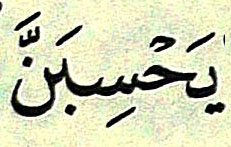 يَحْسِبَنَّ